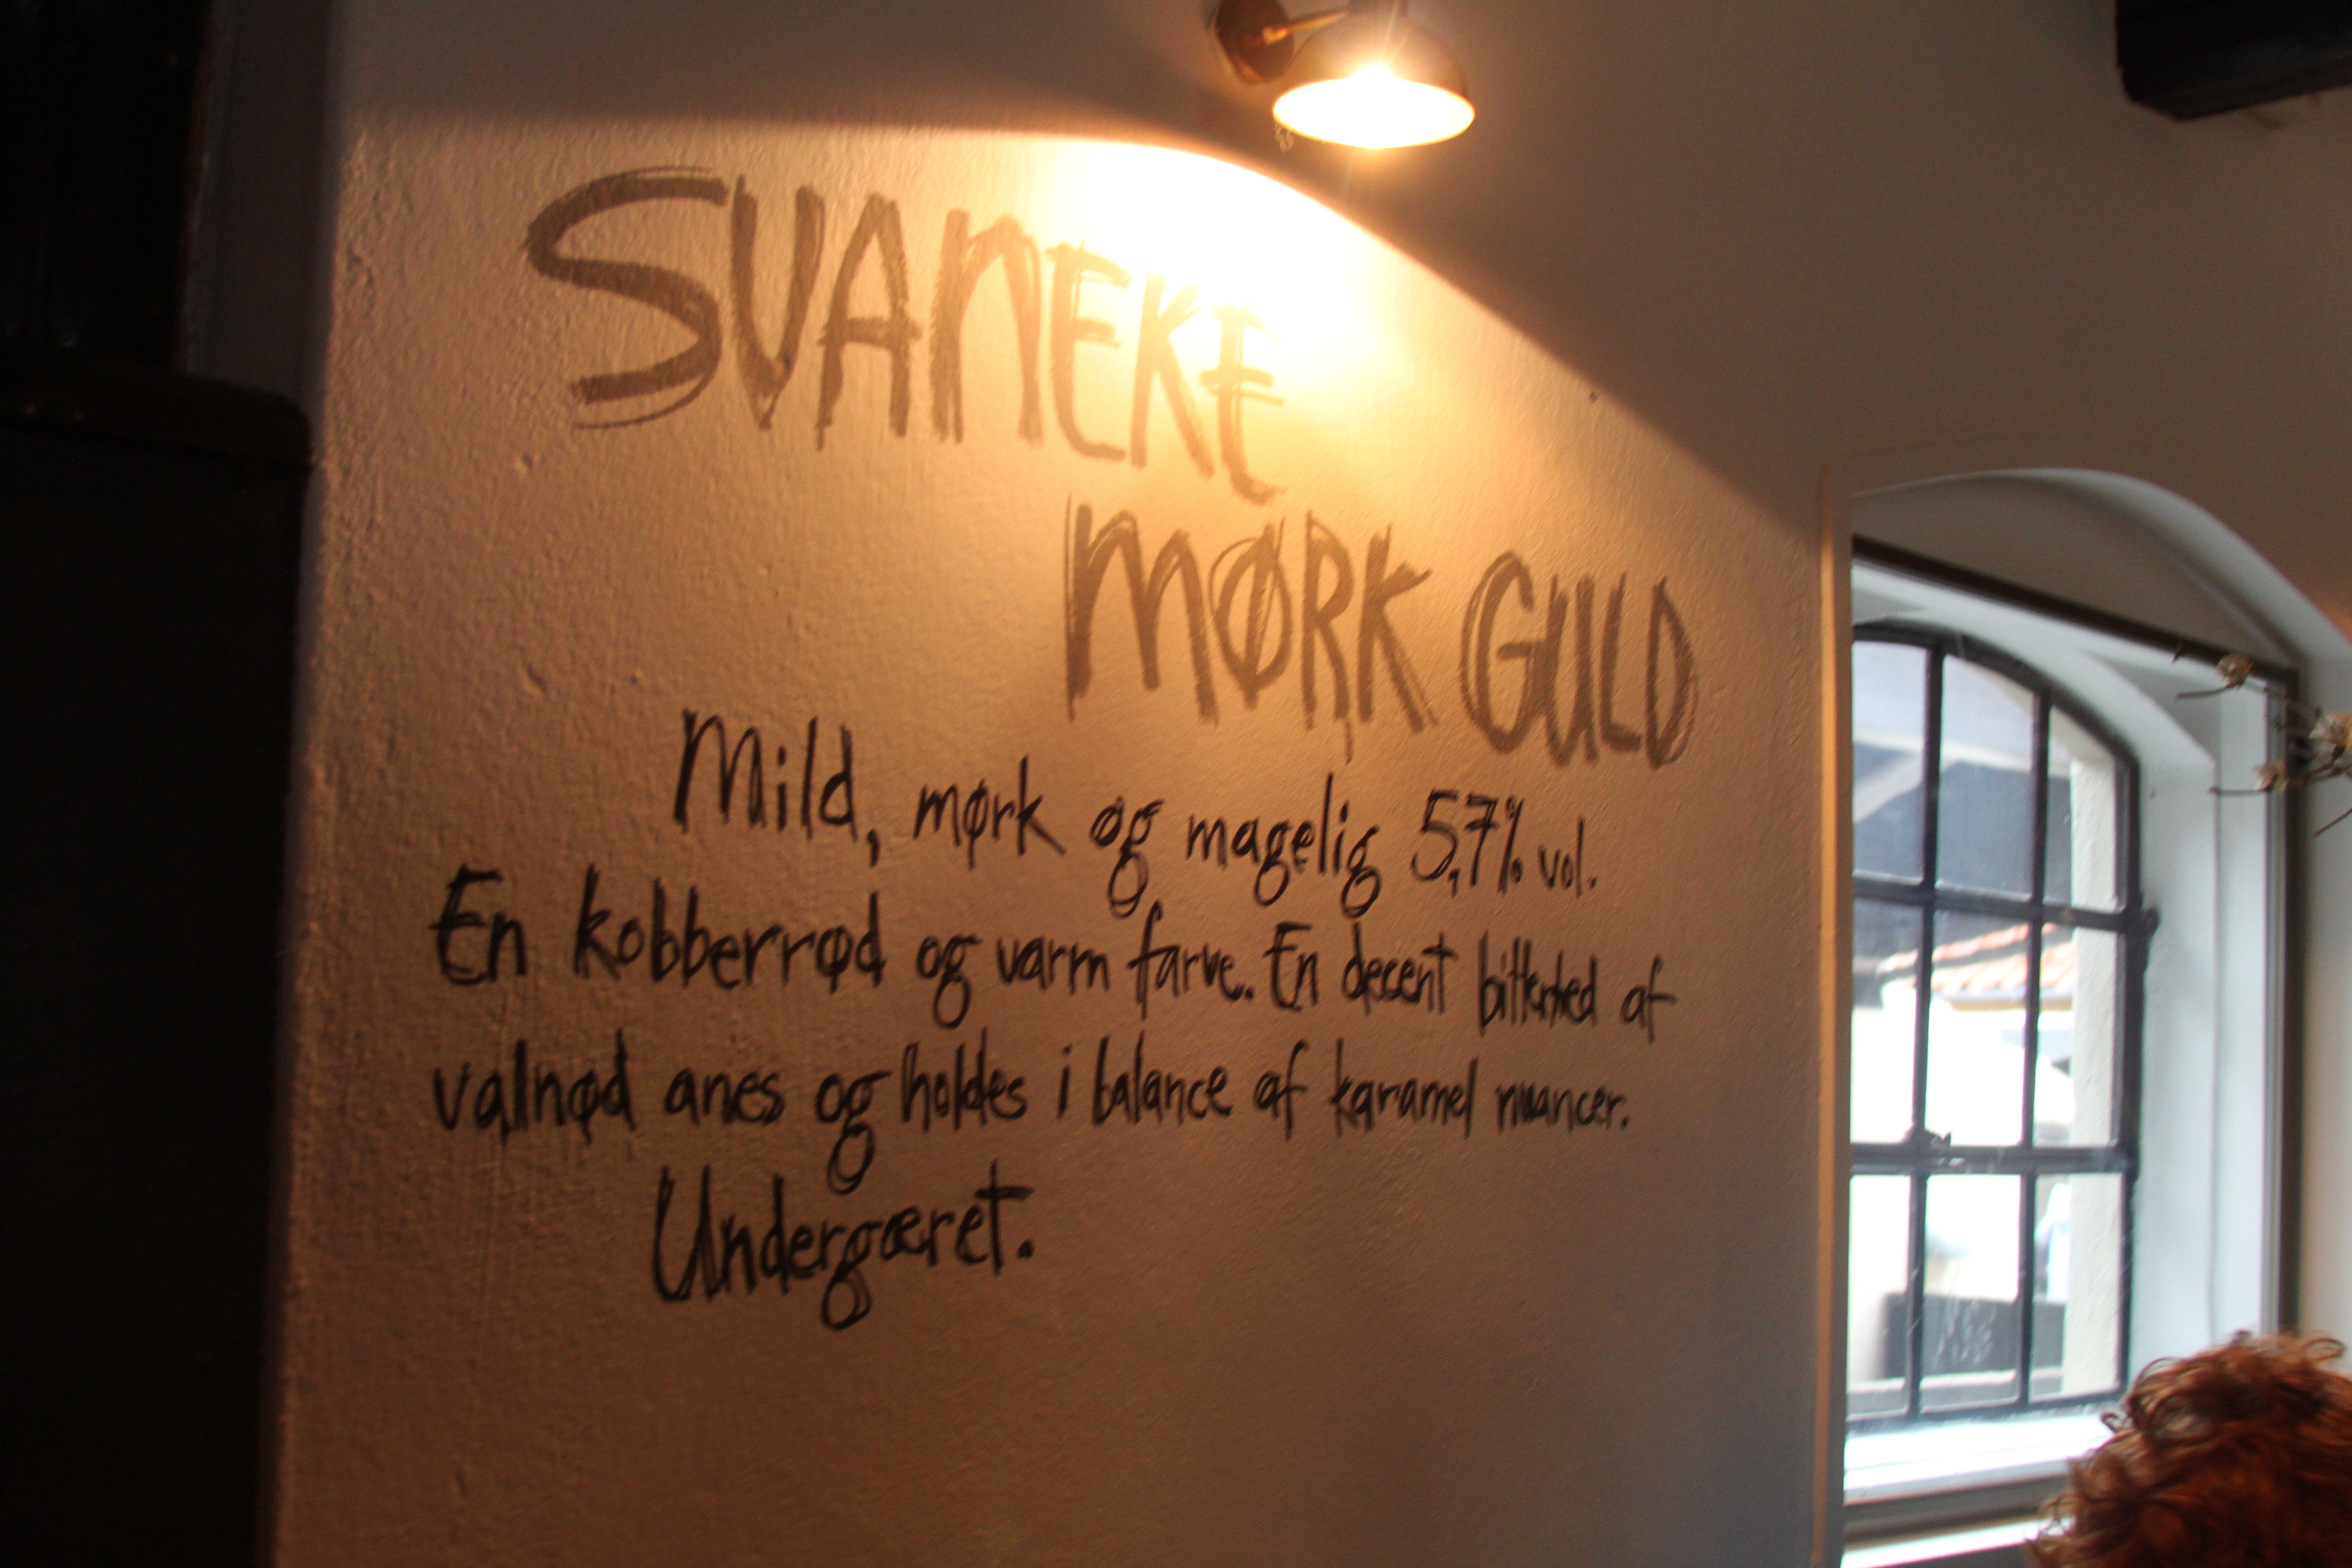 SVANEKE
MØRK GULD
Mild, mørk og magelig 5,7% vol.
En kobberrød og varm farve. En decent bitterhed af
valnød anes og holdes i balance af karamel nuancer.
Undergæret.